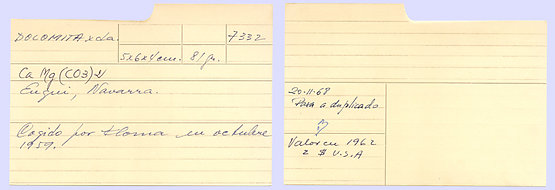 DOLOMITA xda. 7332
5x6x4 cm. 81 gr.
Ca Mg (CO3)2
Eugui, Navarra.
Cogido por en octubre
1959.
20-11-68
Pasa a duplicado
Valor en 1962
2 $ U.S.A